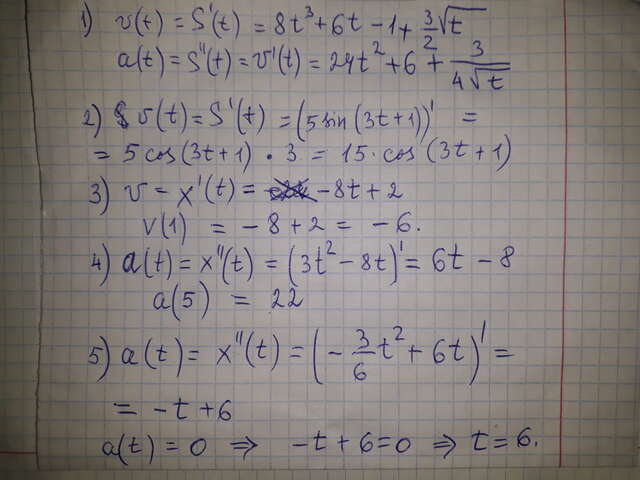 1) v(t) = S'(t) = 8t³ + 6t - 1 + 3/2 √t
a(t) = S''(t) = v'(t) = 24t² + 6 + 3/(4√t)
2) v(t) = S'(t) = (5 sin(3t+1))' =
= 5 cos(3t+1) · 3 = 15 · cos(3t+1)
3) v = x'(t) = -8t + 2
v(1) = -8 + 2 = -6.
4) a(t) = x''(t) = (3t² - 8t)' = 6t - 8
a(5) = 22
5) a(t) = x''(t) = (-3/6 t² + 6t)' =
= -t + 6
a(t) = 0 ⇒ -t + 6 = 0 ⇒ t = 6.